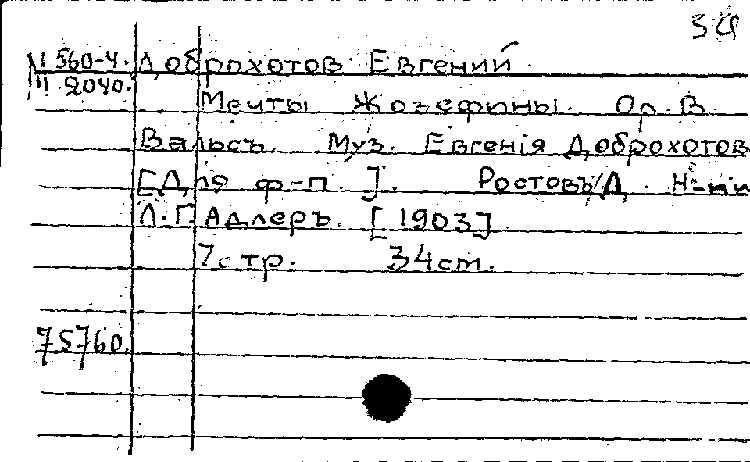 34
N 560-4. Доброхотов Евгений.
11 2040.
Мечты Жозефины. Op. 8.
Вальсъ. Муз. Евгенія Доброхотов
[Для ф-п.]. Ростовъ/Д.
Л.Г. Адлеръ. [1903]
7 стр. 34cm.
75760.